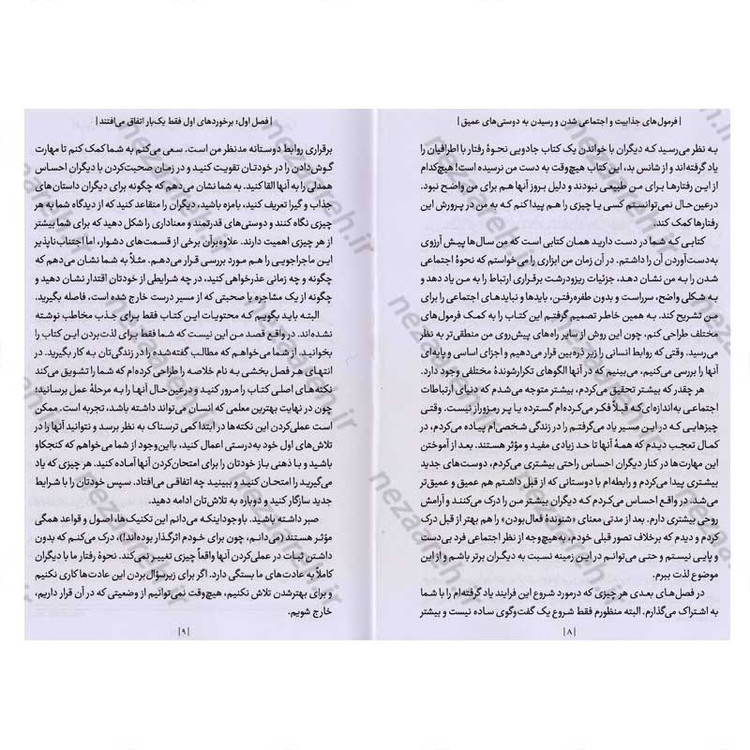 | فرمول‌های جذابیت و اجتماعی شدن و رسیدن به دوستی‌های عمیق |
به نظر می‌رسید که دیگران با خواندن یک کتاب جادویی نحوهٔ رفتار با اطرافیان را
یاد گرفته‌اند و از شانس بد، این کتاب هیچ‌وقت به دست من نرسیده است! هیچ‌کدام
از این رفتارها برای من طبیعی نبودند و دلیل بروز آنها هم برای من واضح نبود.
درعین‌حال نمی‌توانستم کسی یا چیزی را هم پیدا کنم که به من در پرورش این
رفتارها کمک کند.
کتابی که شما در دست دارید همان کتابی است که من سال‌ها پیش آرزوی
به‌دست‌آوردن آن را داشتم. در آن زمان من ابزاری را می‌خواستم که نحوهٔ اجتماعی
شدن را به من نشان دهد، جزئیات ریزودرشت برقراری ارتباط را به من یاد دهد و
به شکلی واضح، سرراست و بدون طفره‌رفتن، بایدها و نبایدهای اجتماعی را برای
من تشریح کند. به همین خاطر تصمیم گرفتم این کتاب را به کمک فرمول‌های
مختلف طراحی کنم، چون این روش از سایر راه‌های پیش‌روی من منطقی‌تر به نظر
می‌رسید. وقتی که روابط انسانی را زیر ذره‌بین قرار می‌دهیم و اجزای اساسی و پایه‌ای
آنها را بررسی می‌کنیم، می‌بینیم که در آنها الگوهای تکرارشوندهٔ مختلفی وجود دارد.
هر چقدر که بیشتر تحقیق می‌کردم، بیشتر متوجه می‌شدم که دنیای ارتباطات
اجتماعی به اندازه‌ای‌که قبلاً فکر می‌کرده‌ام گسترده یا پر رمزوراز نیست. وقتی
چیزهایی که در این مسیر یاد می‌گرفتم را در زندگی شخصی‌ام پیاده می‌کردم، در
کمال تعجب دیدم که همهٔ آنها تا حد زیادی مفید و مؤثر هستند. بعد از آموختن
این مهارت‌ها در کنار دیگران احساس راحتی بیشتری می‌کردم، دوست‌های جدید
بیشتری پیدا می‌کردم و رابطه‌ام با دوستانی که از قبل داشتم هم عمیق و عمیق‌تر
می‌شد. در واقع احساس می‌کردم که دیگران بیشتر من را درک می‌کنند و آرامش
روحی بیشتری دارم. بعد از مدتی معنای «شنوندهٔ فعال‌بودن» را هم بهتر از قبل درک
کردم و دیدم که برخلاف تصور قبلی خودم، به‌هیچ‌وجه از نظر اجتماعی فرد بی‌دست
و پایی نیستم و حتی می‌توانم در این زمینه نسبت به دیگران برتر باشم و از این
موضوع لذت ببرم.
در فصل‌های بعدی هر چیزی که درمورد شروع این فرایند یاد گرفته‌ام را با شما
به اشتراک می‌گذارم. البته منظورم فقط شروع یک گفت‌وگوی ساده نیست و بیشتر
| ۸ |
| فصل اول: برخوردهای اول فقط یک‌بار اتفاق می‌افتند |
برقراری روابط دوستانه مدنظر من است. سعی می‌کنم به شما کمک کنم تا مهارت
گوش‌دادن را در خودتان تقویت کنید و در زمان صحبت‌کردن با دیگران احساس
همدلی را به آنها القا کنید. به شما نشان می‌دهم که چگونه برای دیگران داستان‌های
جذاب و گیرا تعریف کنید، بامزه باشید، دیگران را متقاعد کنید که از دیدگاه شما به هر
چیزی نگاه کنند و دوستی‌های قدرتمند و معناداری را شکل دهید که برای شما بیشتر
از هر چیزی اهمیت دارند. علاوه‌برآن برخی از قسمت‌های دشوار، اما اجتناب‌ناپذیر
این ماجراجویی را هم مورد بررسی قرار می‌دهم. مثلاً به شما نشان می‌دهم که
چگونه و چه زمانی عذرخواهی کنید، در چه شرایطی از خودتان اقتدار نشان دهید و
چگونه از یک مشاجره یا صحبتی که از مسیر درست خارج شده است، فاصله بگیرید.
البته باید بگویم که محتویات این کتاب فقط برای جذب مخاطب نوشته
نشده‌اند. در واقع قصد من این نیست که شما فقط برای لذت‌بردن این کتاب را
بخوانید. از شما می‌خواهم که مطالب گفته‌شده را در زندگی‌تان به کار بگیرید. در
انتهای هر فصل بخشی به نام خلاصه را طراحی کرده‌ام که شما را تشویق می‌کند
نکته‌های اصلی کتاب را مرور کنید و درعین‌حال آنها را به مرحلهٔ عمل برسانید؛
چون در نهایت بهترین معلمی که انسان می‌تواند داشته باشد، تجربه است. ممکن
است عملی‌کردن این نکته‌ها در ابتدا کمی ترسناک به نظر برسد و نتوانید آنها را در
تلاش‌های اول خود به‌درستی اعمال کنید، بااین‌وجود از شما می‌خواهم که کنجکاو
باشید و با ذهنی باز خودتان را برای امتحان‌کردن آنها آماده کنید. هر چیزی که یاد
می‌گیرید را امتحان کنید و ببینید چه اتفاقی می‌افتاد. سپس خودتان را با شرایط
جدید سازگار کنید و دوباره به تلاش‌تان ادامه دهید.
صبر داشته باشید. باوجوداینکه می‌دانم این تکنیک‌ها، اصول و قواعد همگی
مؤثر هستند (می‌دانم، چون برای خودم اثرگذار بوده‌اند!)، درک می‌کنم که بدون
داشتن ثبات در عملی‌کردن آنها واقعاً چیزی تغییر نمی‌کند. نحوهٔ رفتار ما با دیگران
کاملاً به عادت‌های ما بستگی دارد. اگر برای زیرسؤال‌بردن این عادت‌ها کاری نکنیم
و برای بهترشدن تلاش نکنیم، هیچ‌وقت نمی‌توانیم از وضعیتی که در آن قرار داریم،
خارج شویم.
| ۹ |
nezaareh.ir